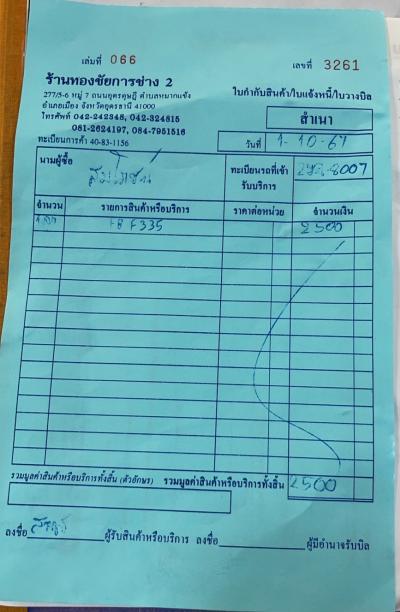 เล่มที่ 066
เลขที่ 3261
ร้านทองชัยการช่าง 2
277/5-6 หมู่ 7 ถนนอุดรดุษฎี ตำบลหมากแข้ง
อำเภอเมือง จังหวัดอุดรธานี 41000
โทรศัพท์ 042-242348, 042-324815
081-2624197, 084-7951516
ทะเบียนการค้า 40-83-1156
ใบกำกับสินค้า/ใบแจ้งหนี้/ใบวางบิล
สำเนา
วันที่ 1-10-67
นามผู้ซื้อ
ทะเบียนรถที่เข้ารับบริการ 8007
จำนวน รายการสินค้าหรือบริการ ราคาต่อหน่วย จำนวนเงิน
F335 2500
รวมมูลค่าสินค้าหรือบริการทั้งสิ้น (ตัวอักษร) รวมมูลค่าสินค้าหรือบริการทั้งสิ้น 2500
ลงชื่อ ผู้รับสินค้าหรือบริการ ลงชื่อ ผู้มีอำนาจรับบิล